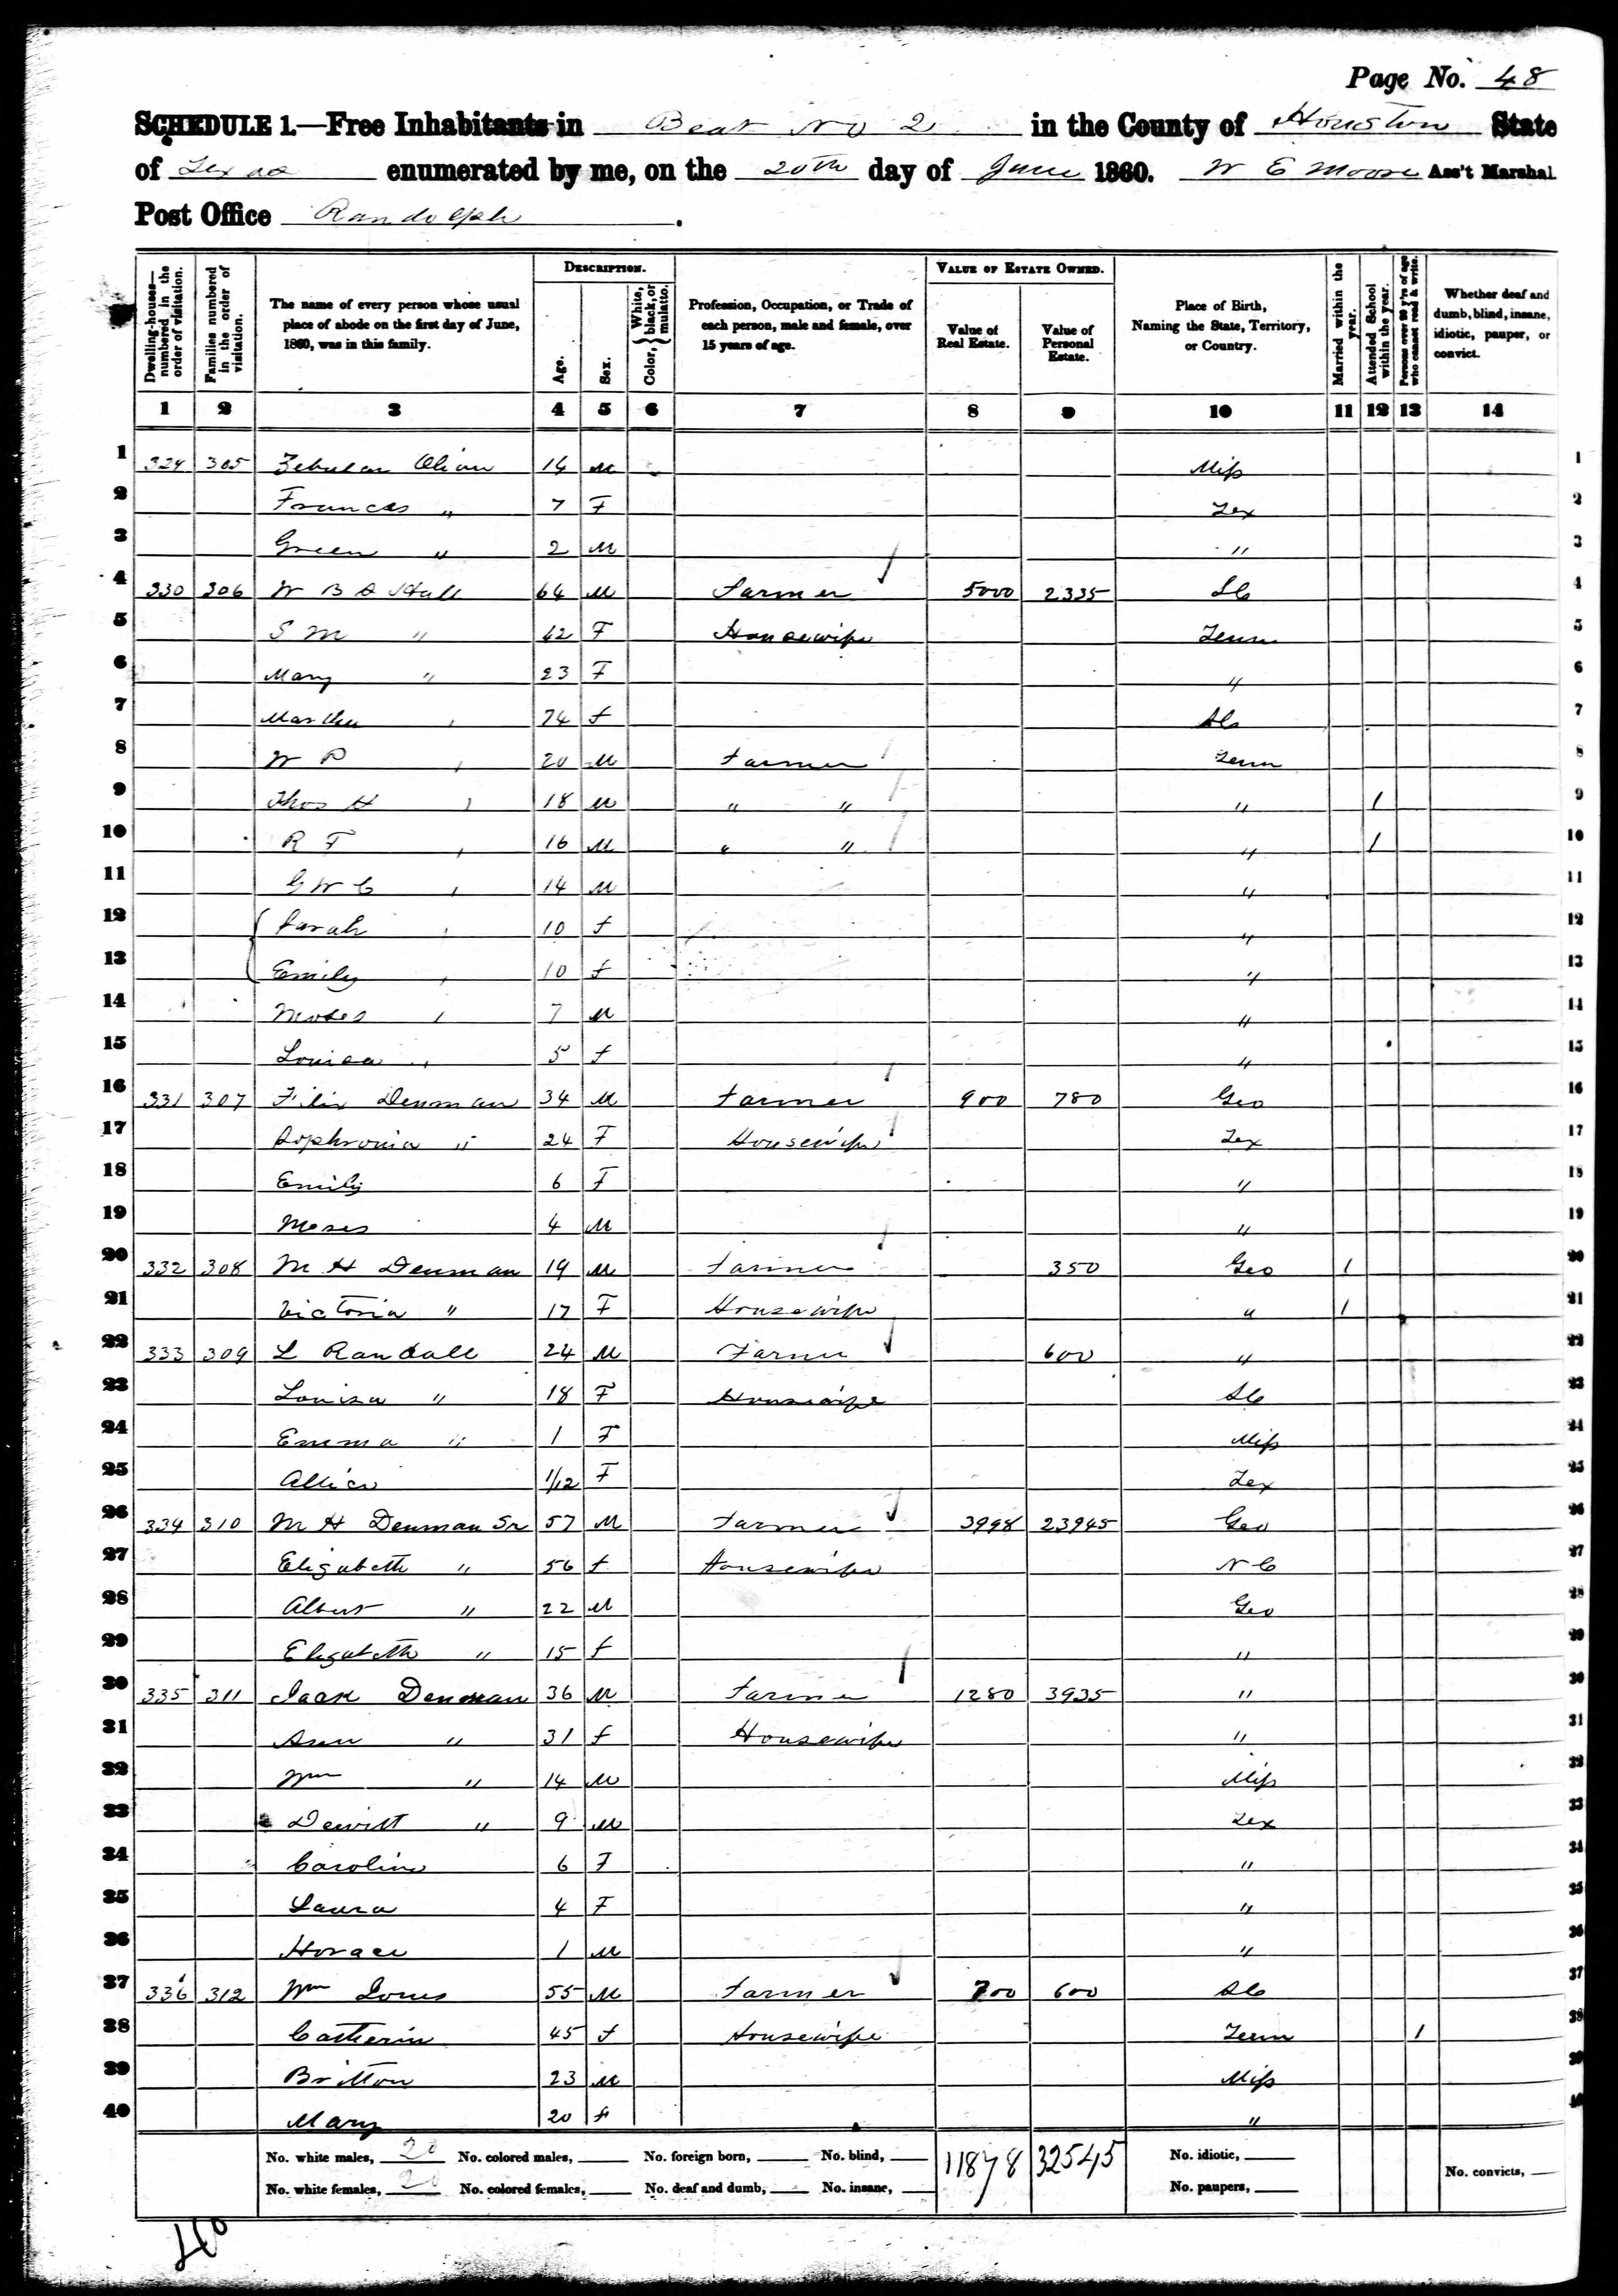 Page No. 48
SCHEDULE 1.—Free Inhabitants in Beat No 2 in the County of Houston State
of Texas enumerated by me, on the 20th day of June 1860. W E Moore Ass't Marshal
Post Office Randolph.
Dwelling-houses—numbered in the order of visitation. Families numbered in the order of visitation. The name of every person whose usual place of abode on the first day of June, 1860, was in this family. DESCRIPTION. Age. Sex. Color, { White, black, or mulatto. Profession, Occupation, or Trade of each person, male and female, over 15 years of age. VALUE OF ESTATE OWNED. Value of Real Estate. Value of Personal Estate. Place of Birth, Naming the State, Territory, or Country. Married within the year. Attended School within the year. Persons over 20 y'rs of age who cannot read & write. Whether deaf and dumb, blind, insane, idiotic, pauper, or convict.
1 2 3 4 5 6 7 8 9 10 11 12 13 14
1 324 305 Zebulon 14 M Miss 1
2 Frances " 7 F Tex 2
3 Green " 2 M " 3
4 330 306 W B Hall 64 M Farmer 5000 2335 4
5 S M " 42 F Housewife Tenn 5
6 Mary " 23 F " 6
7 Martha " 24 f 7
8 W P " 20 M Farmer Tenn 8
9 Thos H " 18 M " " " 1 9
10 R F " 16 M " " " 1 10
11 G W C " 14 M " 11
12 Sarah " 10 f " 12
13 Emily " 10 f " 13
14 Moses " 7 M " 14
15 Louisa " 5 f " 15
16 331 307 Filix Denman 34 M Farmer 900 780 Geo 16
17 Sophronia " 24 F Housewife Tex 17
18 Emily 6 F " 18
19 Moses 4 M " 19
20 332 308 M H Denman 19 M Farmer 350 Geo 1 20
21 Victoria " 17 F Housewife " 1 21
22 333 309 L Randall 24 M Farmer 600 " 22
23 Louisa " 18 F Housewife 23
24 Emma " 1 F Miss 24
25 1/12 F Tex 25
26 334 310 M H Denman Sr 57 M Farmer 3998 23945 Geo 26
27 Elizabeth " 56 f Housewife N C 27
28 Albert " 22 M Geo 28
29 Elizabeth " 15 f " 29
30 335 311 Jack Denman 36 M Farmer 1280 3935 " 30
31 Ann " 31 f Housewife " 31
32 Wm " 14 M Miss 32
33 Dewitt " 9 M Tex 33
34 Caroline 6 F " 34
35 Laura 4 F " 35
36 Horace 1 M " 36
37 336 312 Wm Jones 55 M Farmer 700 600 37
38 Catherin 45 f Housewife Tenn 1 38
39 Britton 23 M Miss 39
40 Mary 20 f " 40
No. white males, 20 No. colored males, No. foreign born, No. blind, 11878 32545 No. idiotic,
No. white females, 20 No. colored females, No. deaf and dumb, No. insane, No. paupers, No. convicts,
40